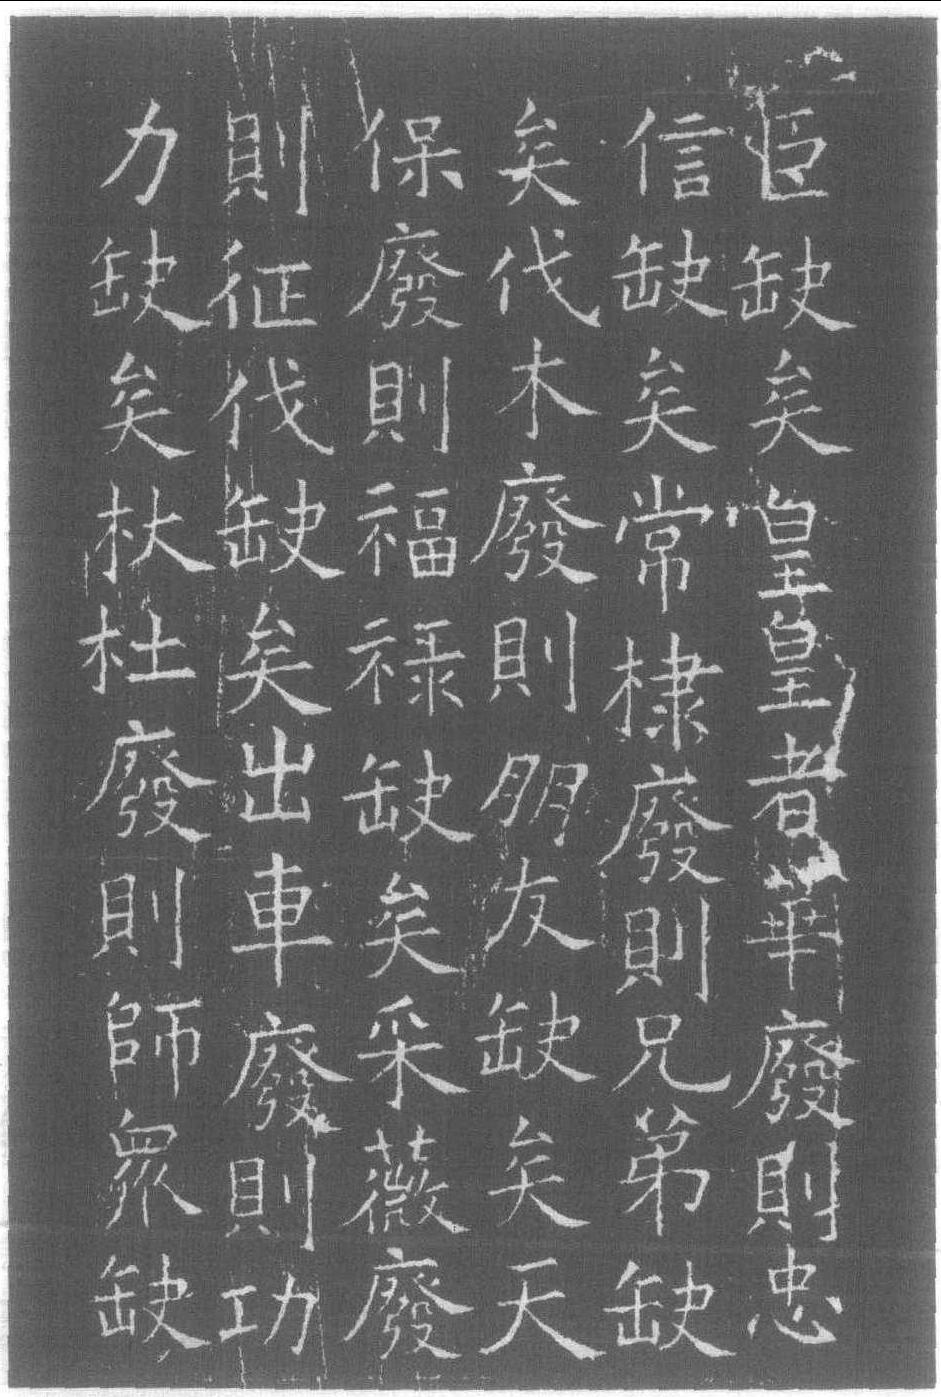 臣缺矣皇皇者華廢則忠
信缺矣常棣廢則兄弟缺
矣伐木廢則朋友缺矣天
保廢則福祿缺矣采薇廢
則征伐缺矣出車廢則功
力缺矣杕杜廢則師眾缺